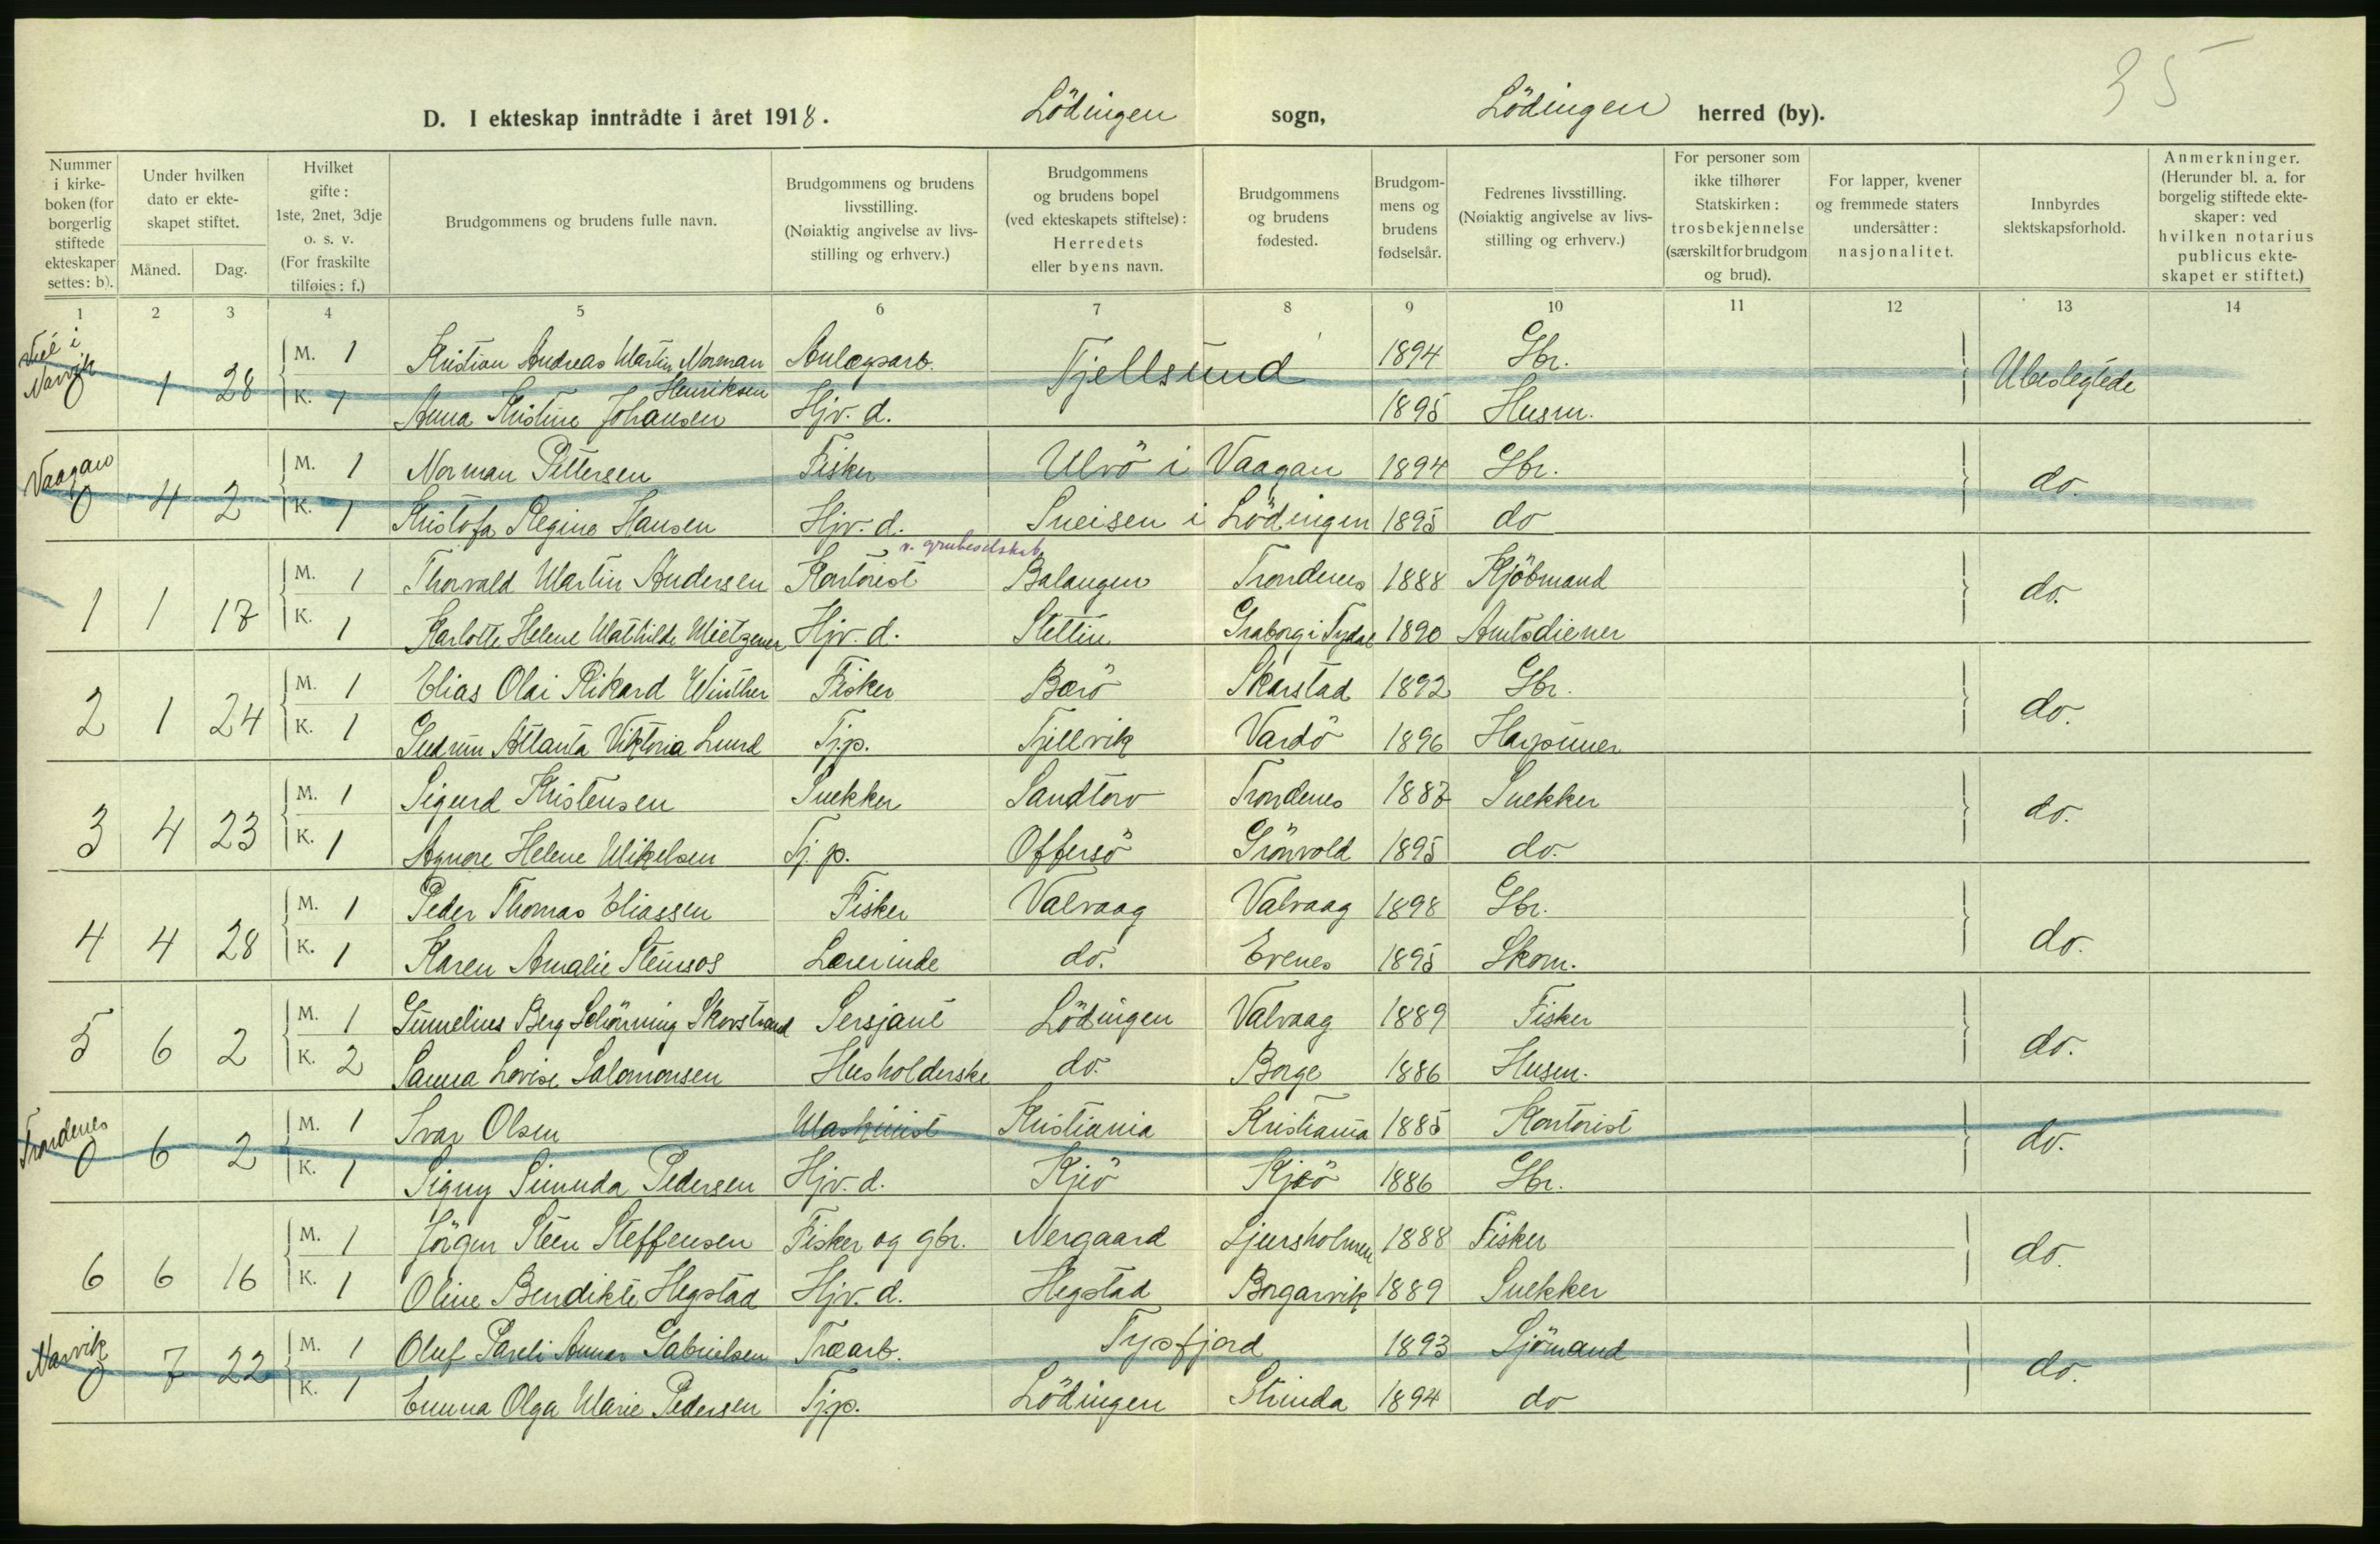 35
D. I ekteskap inntrådte i året 1918. Lödingen sogn, Lödingen herred (by).
Nummer i kirkeboken (for borgerlig stiftede ekteskaper settes: b).
Under hvilken dato er ekteskapet stiftet.
Måned. Dag.
Hvilket gifte: 1ste, 2net, 3dje o. s. v. (For fraskilte tilføies: f.)
Brudgommens og brudens fulle navn.
Brudgommens og brudens livsstilling. (Nøiaktig angivelse av livsstilling og erhverv.)
Brudgommens og brudens bopel (ved ekteskapets stiftelse): Herredets eller byens navn.
Brudgommens og brudens fødested.
Brudgommens og brudens fødselsår.
Fedrenes livsstilling. (Nøiaktig angivelse av livsstilling og erhverv.)
For personer som ikke tilhører Statskirken: trosbekjennelse (særskilt for brudgom og brud).
For lapper, kvener og fremmede staters undersåtter: nasjonalitet.
Innbyrdes slektskapsforhold.
Anmerkninger. (Herunder bl. a. for borgelig stiftede ekteskaper: ved hvilken notarius publicus ekteskapet er stiftet.)
1 2 3 4 5 6 7 8 9 10 11 12 13 14
M. 1 Kristian Andreas Martin Norman Henriksen Anlægsarb. Fjellsund 1894 Gbr.
i Narvik 0 1 28 K. 1 Anna Kristine Johansen Hjv. d. 1895 Husm. Ubeslegtede
M. 1 Norman Pettersen Fisker Ulvö i Vaagan 1894 Gbr.
Vaagan 0 4 2 K. 1 Kristofa Regine Hansen Hjv. d. Sneisen i Lödingen 1895 do do.
v. grubeselskab
M. 1 Thorvald Martin Andersen Kontorist Balangen Trondenes 1888 Kjöbmand
1 1 17 K. 1 Karlotte Helene Mathilde Mietzener Hjv. d. Stettin 1890 Amtsdiener do.
M. 1 Elias Olai Rikard Winther Fisker Barö Skarstad 1892 Gbr.
2 1 24 K. 1 Gudrun Atlanta Viktoria Lund Tj.p. Fjellvik Vardö 1896 Harpuner do.
M. 1 Sigurd Kristensen Snekker Sandtorv Trondenes 1887 Snekker
3 4 23 K. 1 Agnore Helene Mikelsen Tj. p. Offersö Grönvold 1895 do. do.
M. 1 Peder Thomas Eliassen Fisker Valvaag Valvaag 1898 Gbr.
4 4 28 K. 1 Karen Amalie Steinsos Lærerinde do. Evenes 1895 Skom. do.
M. 1 Sunnelius Berg Schönning Skovstrand Sersjant Lödingen Valvaag 1889 Fisker
5 6 2 K. 2 Sanna Lovise Salomonsen Husholderske do. Borge 1886 Husm. do.
M. 1 Ivar Olsen Maskinist Kristiania Kristiania 1885 Kontorist
Trondenes 0 6 2 K. 1 Signy Simunda Pedersen Hjv. d. Kjeö Kjeö 1886 Gbr. do.
M. 1 Jörgen Steen Steffensen Fisker og gbr. Nergaard Ljursholmen 1888 Fisker
6 6 16 K. 1 Oline Bendikte Hegstad Hjv. d. Hegstad Bogarvik 1889 Snekker do.
M. 1 Oluf Pareli Annar Gabrielsen Træarb. Tysfjord 1893 Sjömand
Narvik 0 7 22 K. 1 Emma Olga Marie Pedersen Tjp. Lödingen Strinda 1894 do do.